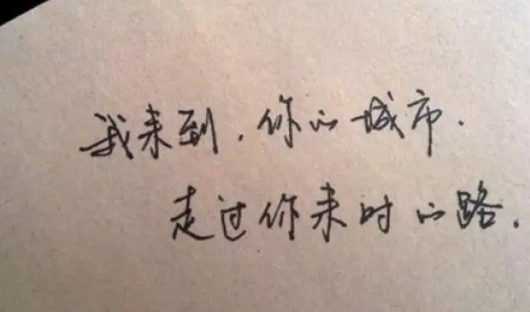 我来到，你的城市．
走过你来时的路．